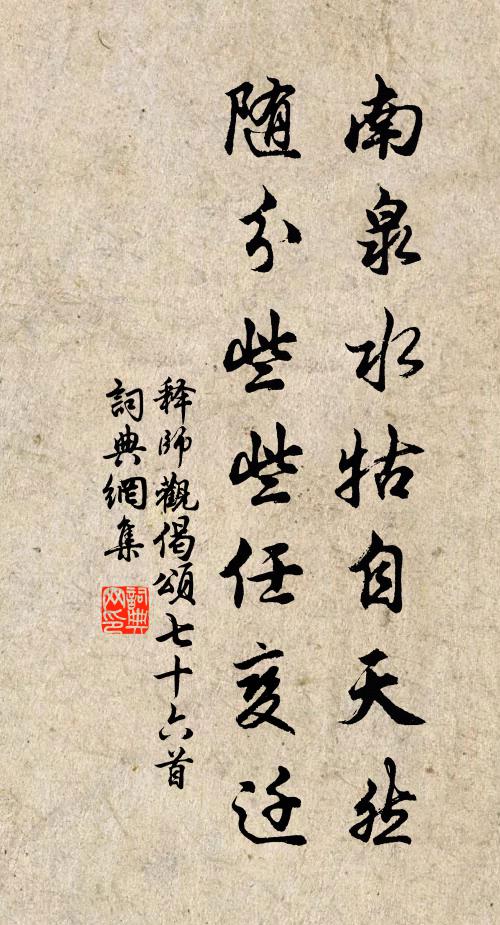 南泉水牯自天然
随分些些任变迁
释师觀偈頌七十六首
詞典網集
詞典网印